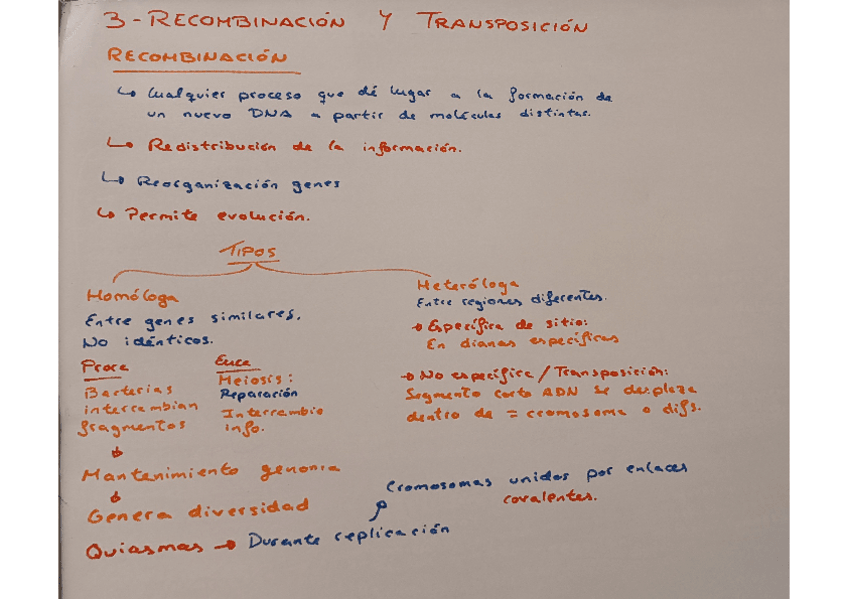 3-RECOMBINACIÓN Y TRANSPOSICIÓN
RECOMBINACIÓN
↳ Cualquier proceso que dé lugar a la formación de
un nuevo DNA a partir de moléculas distintas.
↳ Redistribución de la información.
↳ Reorganización genes
↳ Permite evolución.
TIPOS
Homóloga
Entre genes similares.
No idénticos.
Proca
Bacterias
intercambian
fragmentos
Euca
Meiosis:
Reparación
Intercambio
info.
Mantenimiento genoma
Genera diversidad
Quiasmas → Durante replicación
Cromosomas unidos por enlaces
covalentes.
Heteróloga
Entre regiones diferentes.
→ Específica de sitio:
En dianas específicas
→ No específica / Transposición:
Segmento corto ADN se desplaza
dentro de = cromosoma o difs.